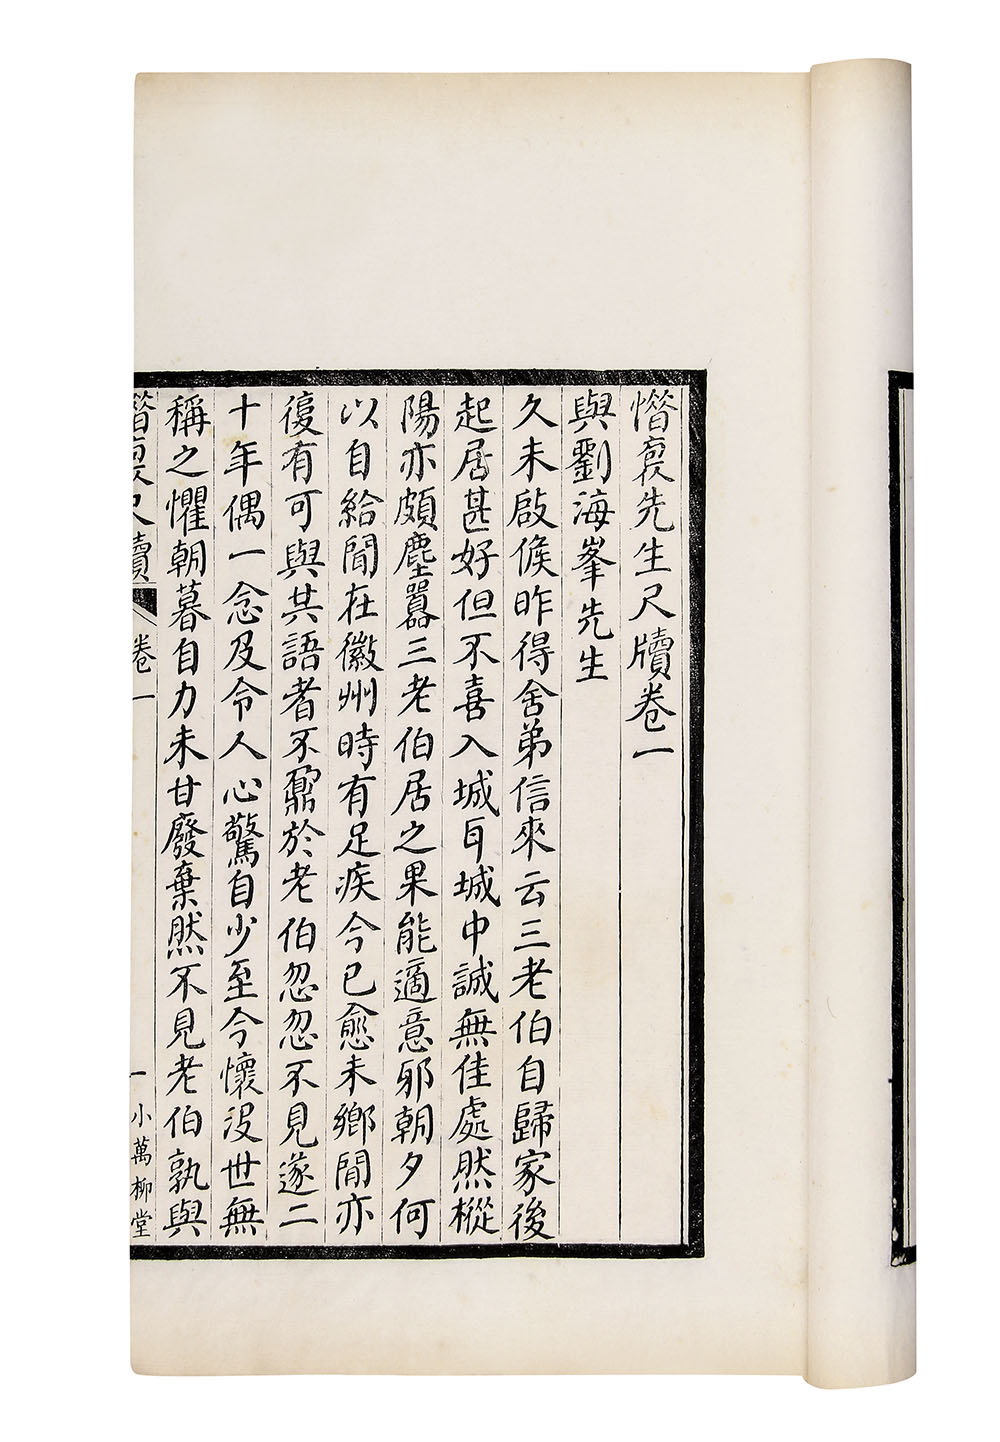 惜裒先生尺牘卷一
與劉海峯先生
久未啟候昨得舍弟信來云三老伯自歸家後
起居甚好但不喜入城耳城中誠無佳處然樅
陽亦頗塵囂三老伯居之果能適意邪朝夕何
以自給聞在徽州時有足疾今已愈未鄉閒亦
復有可與共語者不鼐於老伯忽忽不見遂二
十年偶一念及令人心驚自少至今懷沒世無
稱之懼朝暮自力未甘廢棄然不見老伯孰與
惜裒尺牘 卷一 一 小萬柳堂